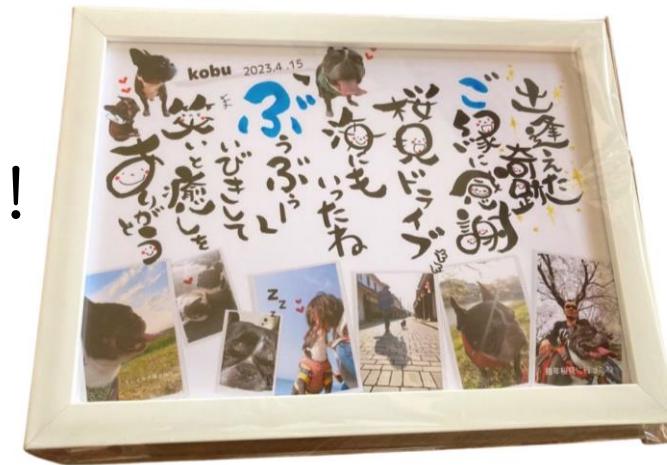 !
kobu 2023.4.15
出逢えた奇跡
ご縁に感謝
桜見ドライブ
海にもいったね
ぶぅぶぅー
いびきして
笑いと癒しを
ありがとう
zzz